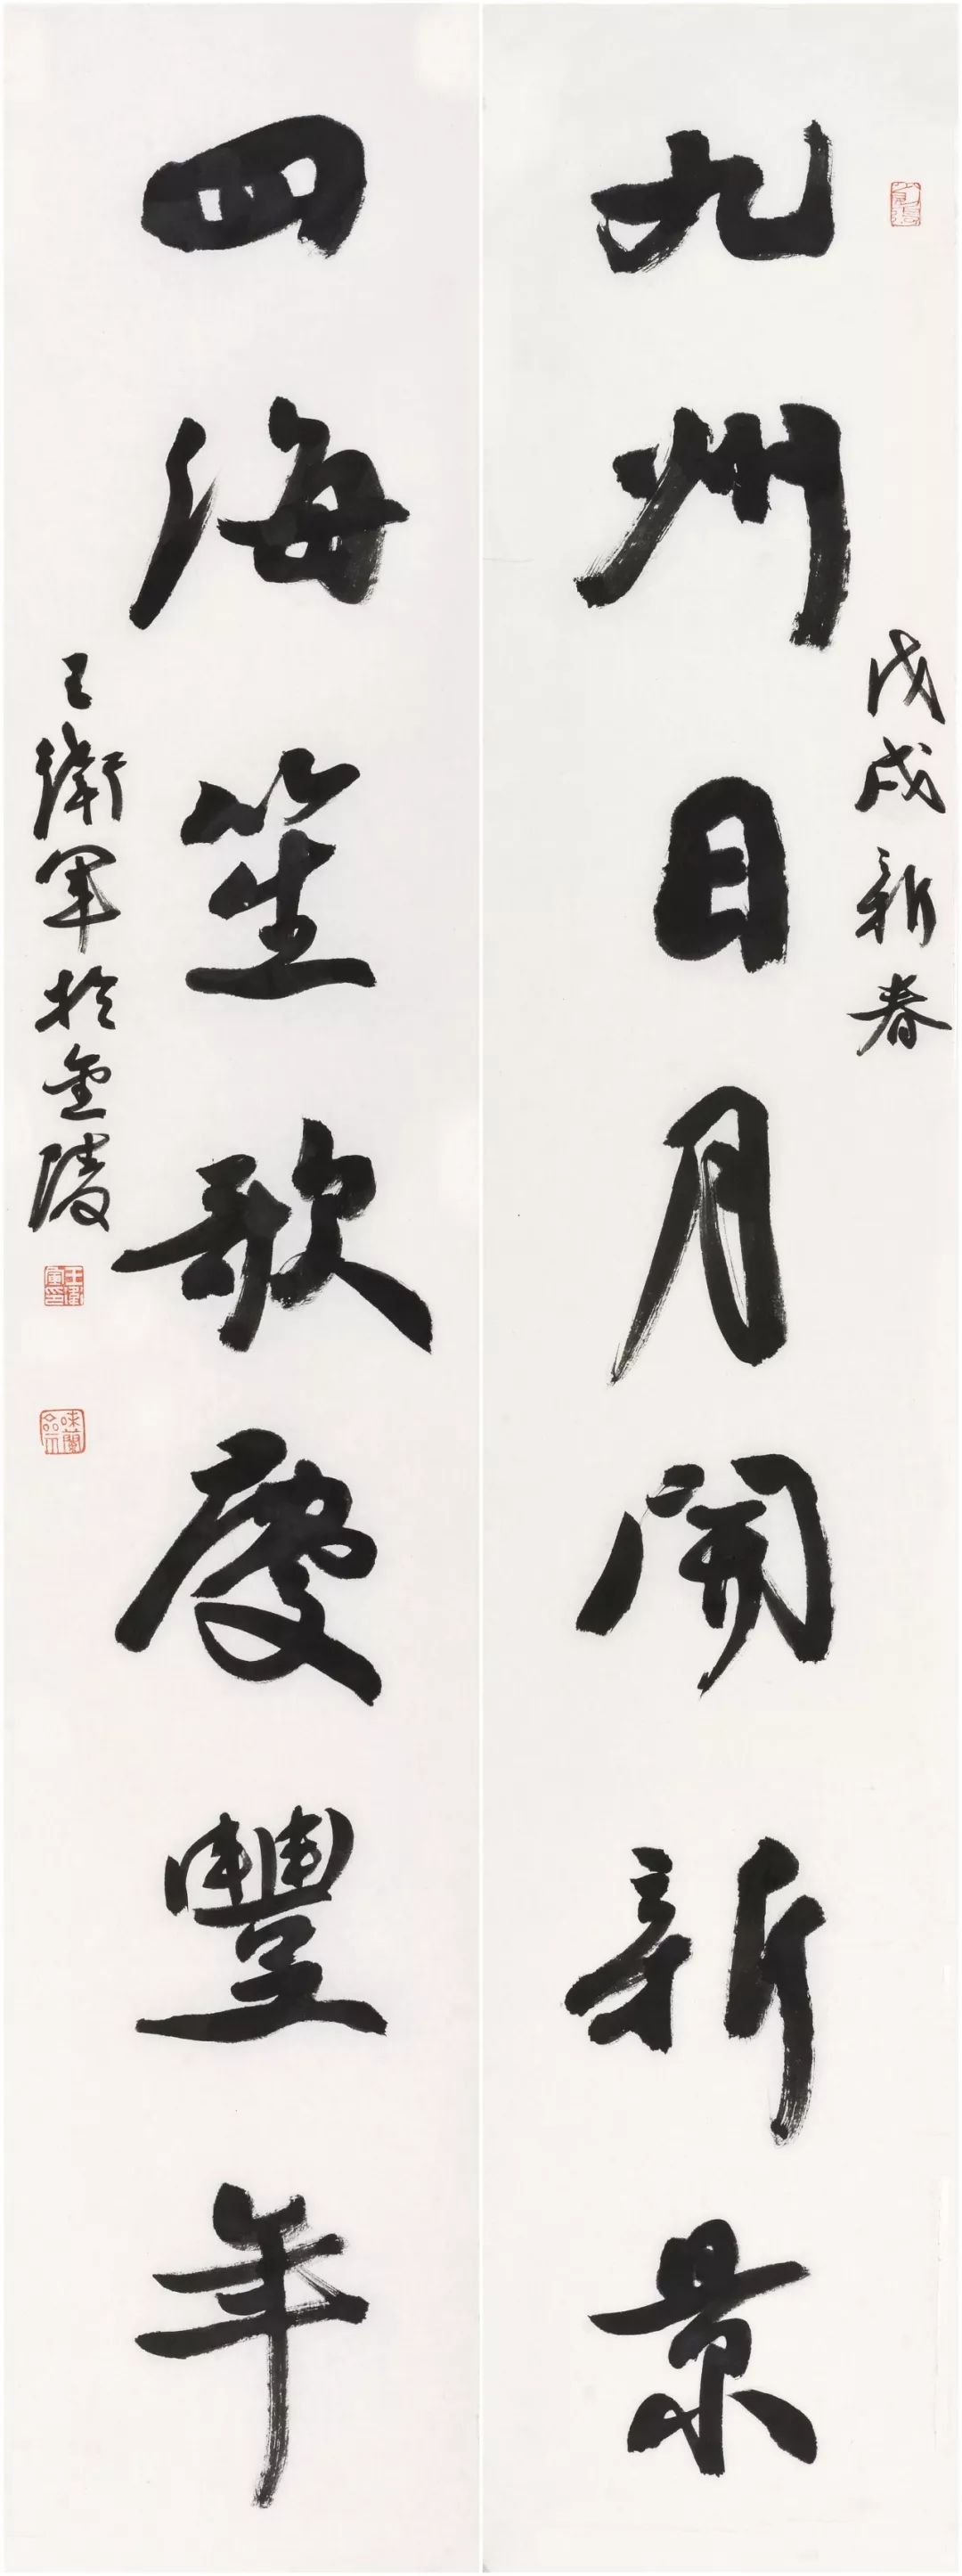 九州日月開新景
戊戌新春
四海笙歌慶豐年
王衛軍於金陵